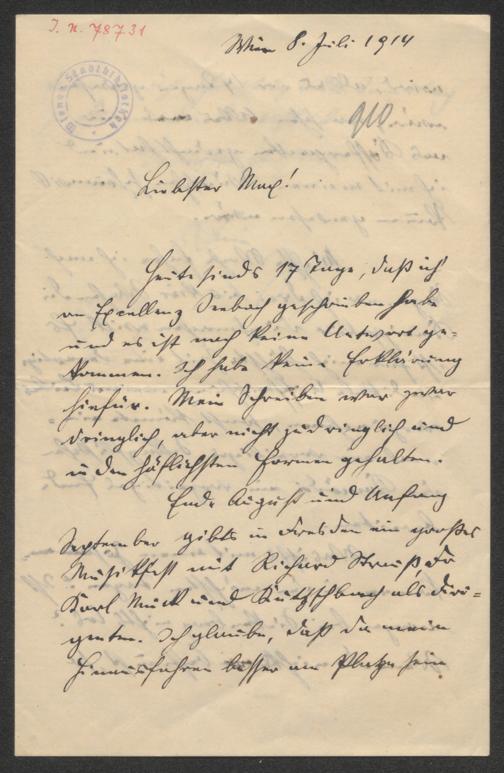 I. N. 78731
Wiener Stadtbibliothek
Wien 8. Juli 1914
Liebster Max!
Heute sinds 17 Tage, daß ich
an Excellenz Seebach geschrieben habe
und es ist noch keine Antwort ge-
kommen. Ich habe keine Erklärung
hiefür. Mein Schreiben war zwar
dringlich, aber nicht zudringlich und
in den höflichsten Formen gehalten.
Ende August und Anfang
September gibts in Dresden ein großes
Musikfest mit Richard Strauß, Dr
Karl Muck und Kutzschbach als Diri-
genten. Ich glaube, daß da mein
Hinausfahren besser am Platze sein